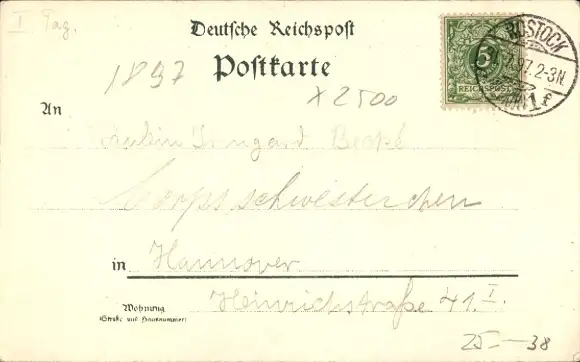 I Tag.
Deutsche Reichspost
Postkarte
1897
x2500
5
REICHSPOST
ROSTOCK
97. 2-3N
1f
An
Fräulein Irmgard
Corpsschwesterchen
in Hannover
Wohnung Heinrichstraße 41. I.
(Straße und Hausnummer)
25 — 38